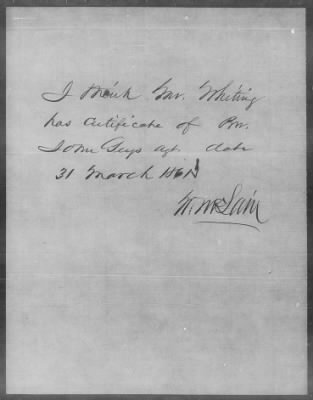 I think Mr. Whiting
has certificate of Rev.
John Seys agt. date
31 March 1861
W. McLain